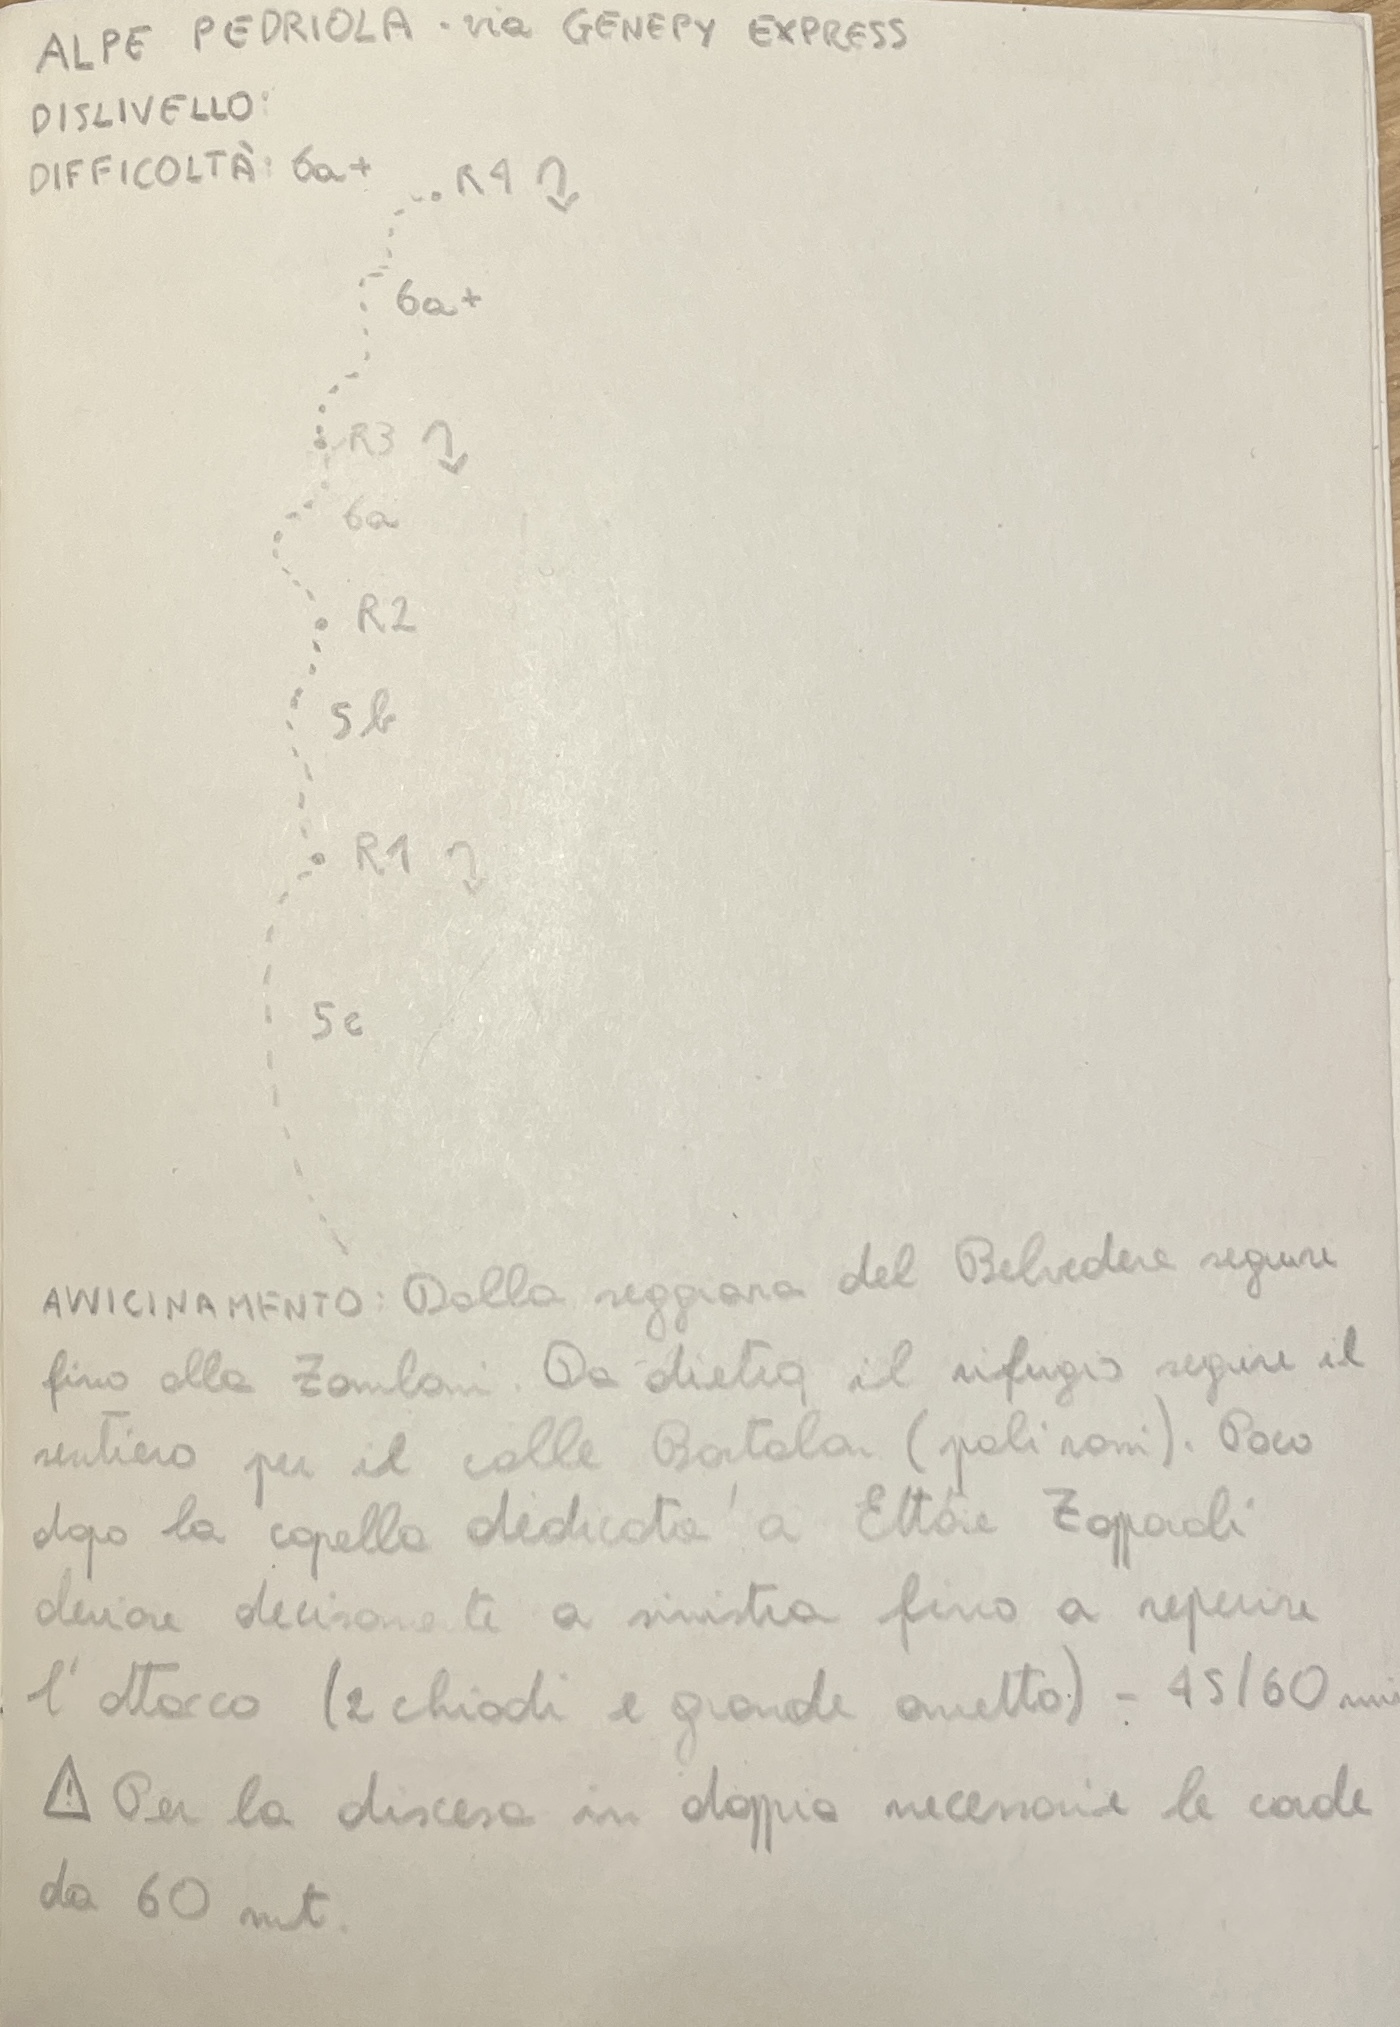 ALPE PEDRIOLA - via GENEPY EXPRESS
DISLIVELLO:
DIFFICOLTÀ: 6a+
R4
6a+
R3
6a
R2
5b
R1
5c
AVVICINAMENTO: Dalla seggiovia del Belvedere seguire
fino alla Zamboni. Da dietro il rifugio seguire il
sentiero per il colle (pali rossi). Poco
dopo la capella dedicata a Ettore Zapparoli
deviare decisamente a sinistra fino a reperire
l'attacco (2 chiodi e grande ometto) - 45/60 min
⚠ Per la discesa in doppia necessarie le corde
da 60 mt.